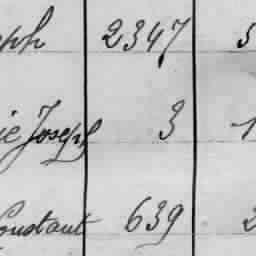 eph 2347 5
ie Joseph 3 1
Constant 639 2